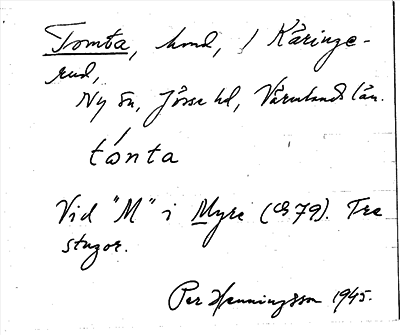 Tomta, hmd, i Käringe-
rud,
Ny sn, Jösse hd, Värmlands län.
tonta
Vid "M" i Myre (79). Tre
stugor.
Per Henningsson 1945.